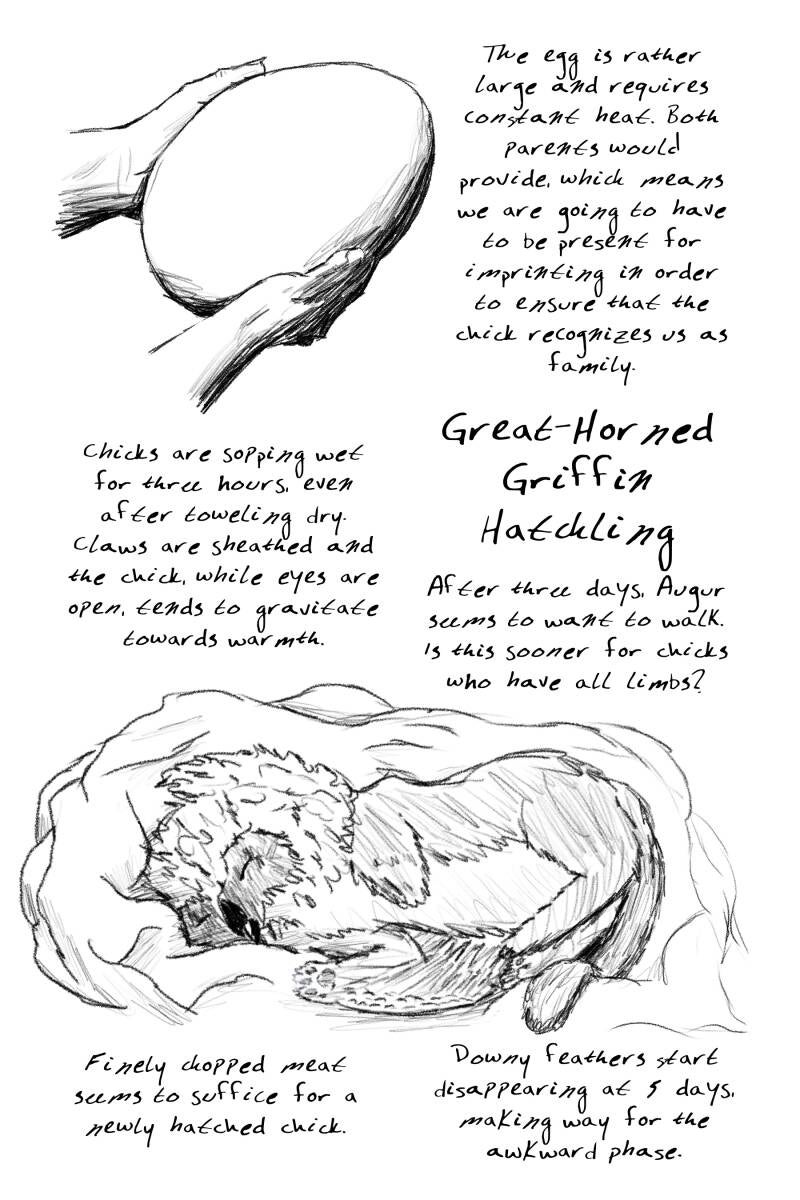 The egg is rather
large and requires
constant heat. Both
parents would
provide, which means
we are going to have
to be present for
imprinting in order
to ensure that the
chick recognizes us as
family.
Great-Horned
Griffin
Hatchling
Chicks are sopping wet
for three hours, even
after toweling dry.
Claws are sheathed and
the chick, while eyes are
open, tends to gravitate
towards warmth.
After three days, Augur
seems to want to walk.
Is this sooner for chicks
who have all limbs?
Finely chopped meat
seems to suffice for a
newly hatched chick.
Downy feathers start
disappearing at 5 days,
making way for the
awkward phase.